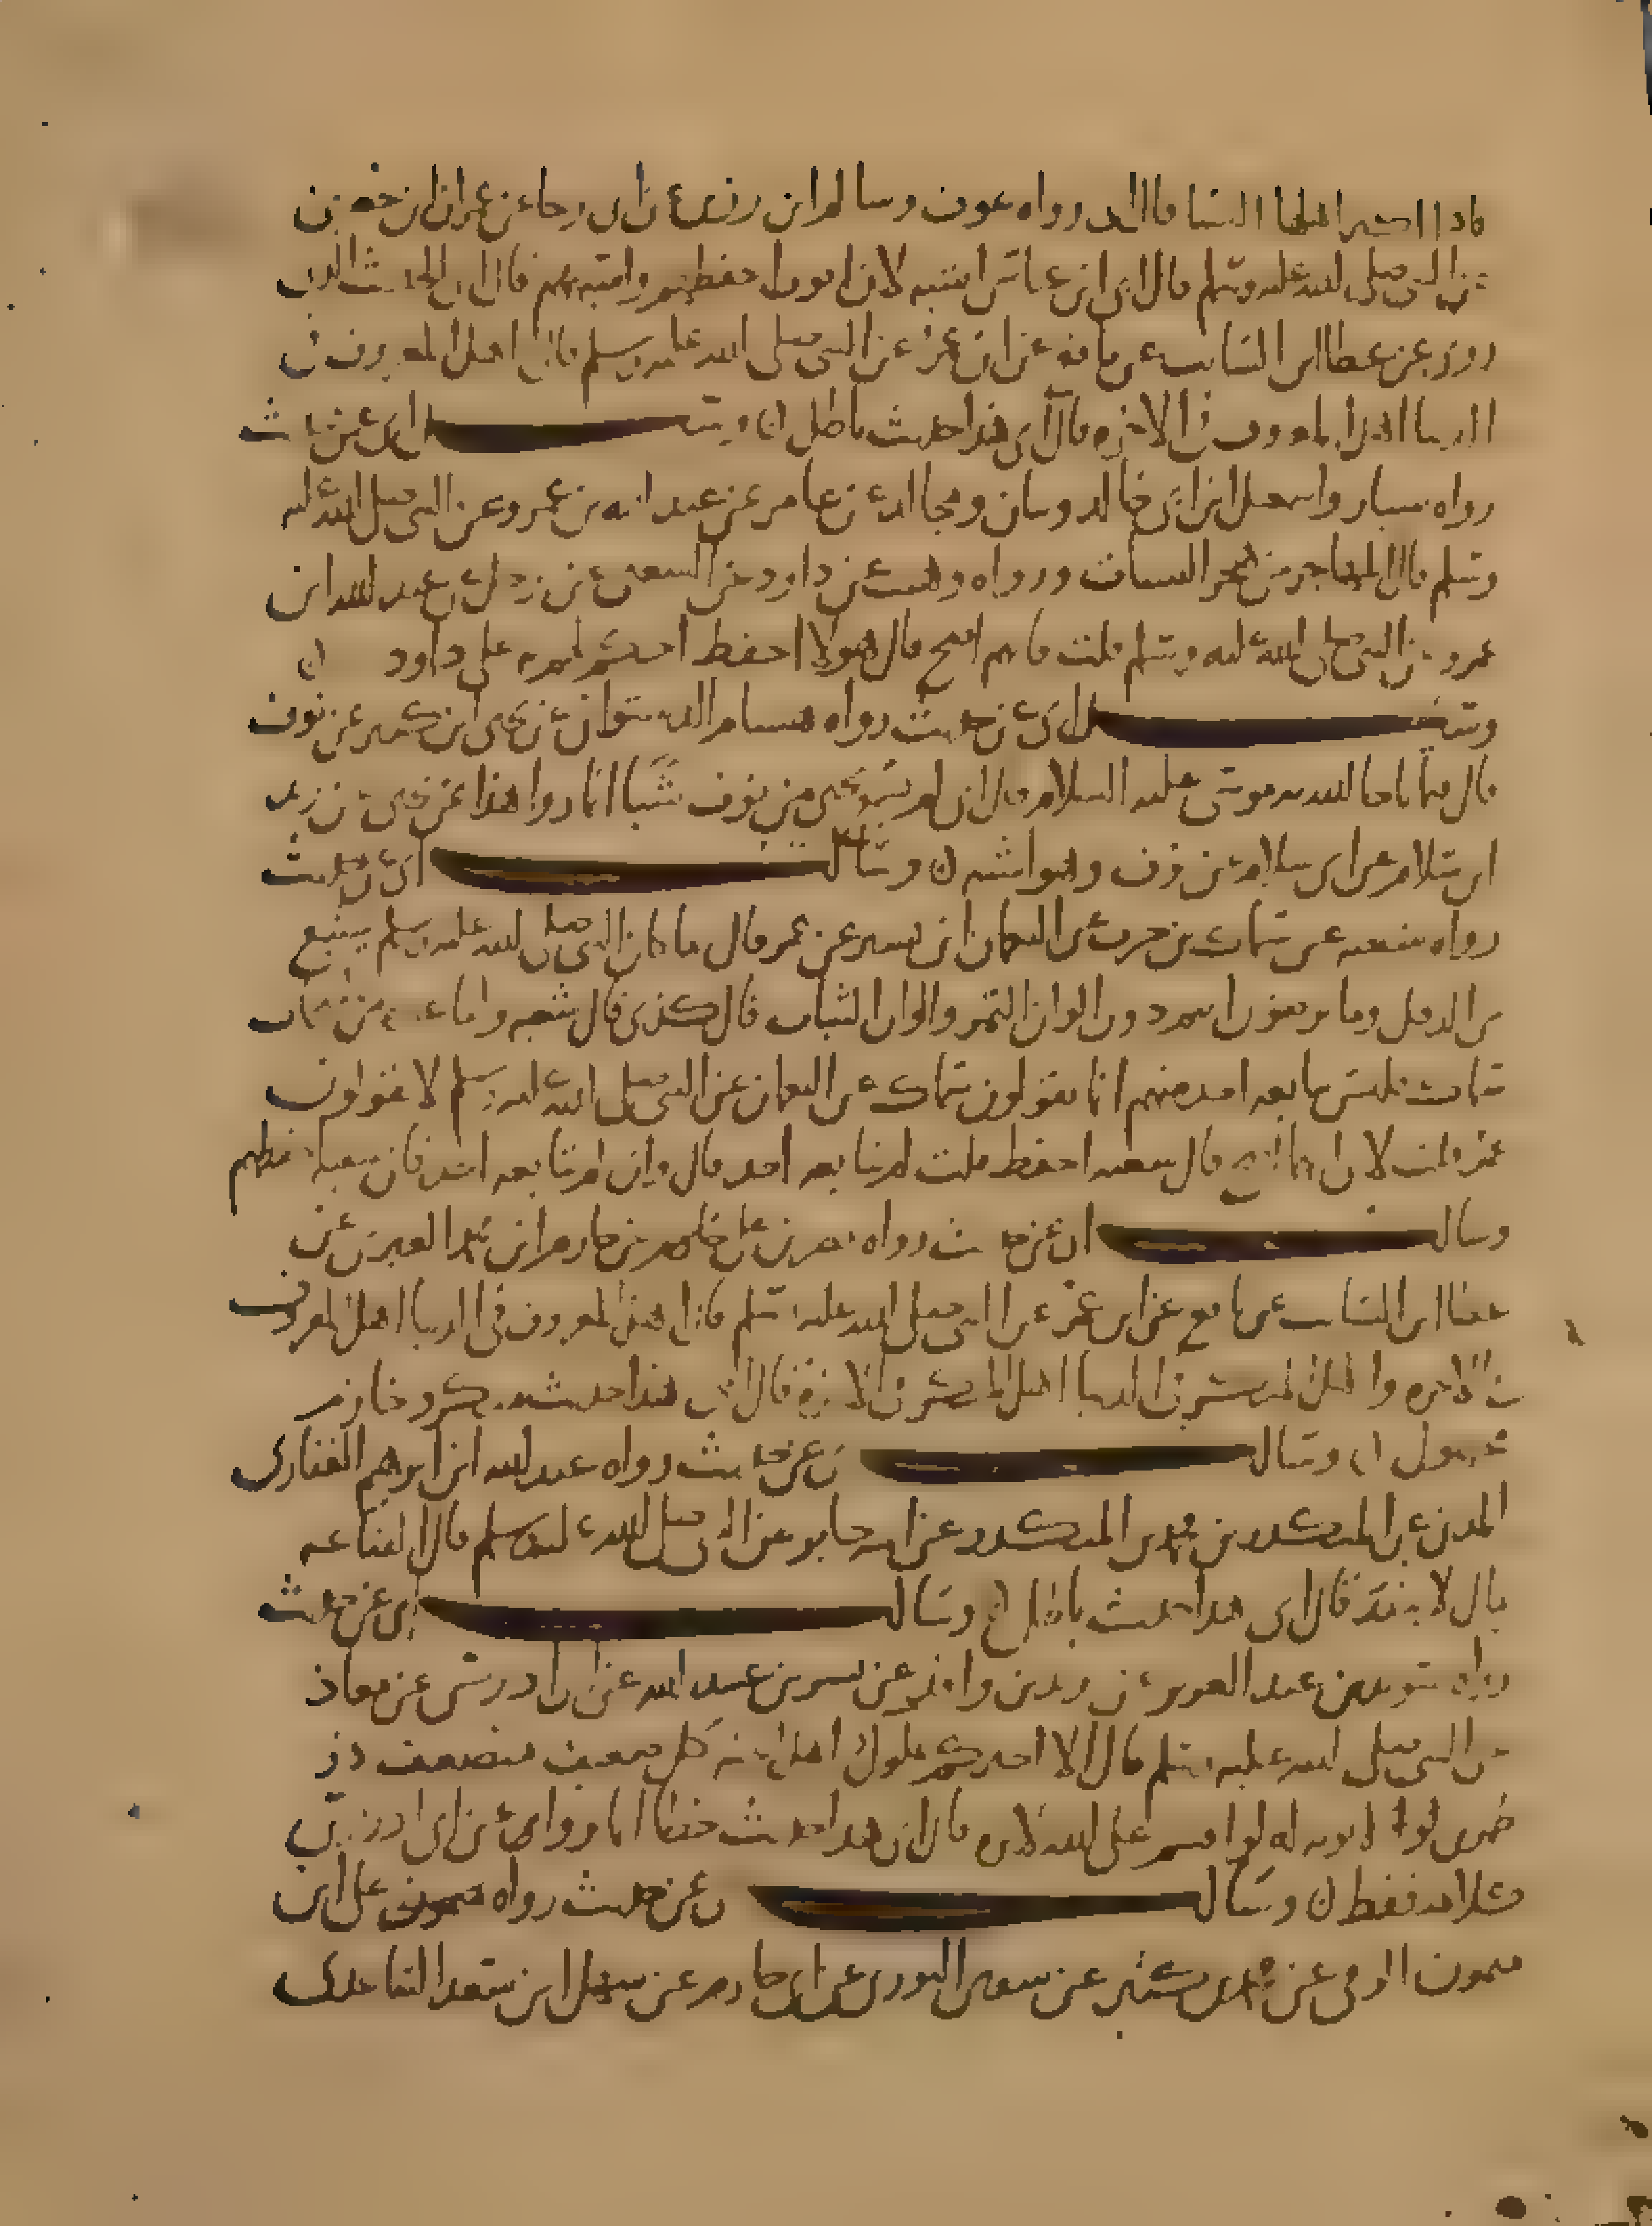 فاذا اكثر اهلها النسا قال ابي رواه عوف وسالم ابن رزين عن ابي رجا عن عمران ابن حصين
عن النبي صلى الله عليه وسلم قال ابي ابن عباس اشبه لان ايوب احفظهم واثبتهم قال ابي الحديث الذي
روي عن عطا ابن السايب عن نافع عن ابن عمر عن النبي صلى الله عليه وسلم قال اهل المعروف في
الدنيا اهل المعروف في الاخره قال ابي هذا حديث باطل ن وسالت ابي عن حديث
رواه سيار واسمعيل ابن ابي خالد وبيان ومجالد عن عامر عن عبد الله بن عمرو عن النبي صلى الله عليه
وسلم قال المهاجر من هجر السيات ورواه وهيب عن داود عن الشعبي عن رجل عن عبد الله ابن
عمرو عن النبي صلى الله عليه وسلم قلت فايهم اصح قال هولا احفظ على داود ن
وسالت ابي عن حديث رواه هشام الدستواي عن يحيى ابن كثير عن نوف
قال موسى عليه السلام قال ابي لم يسمع يحيى من نوف شيا انما روا هذا عن يحيى عن زيد
ابن سلام عن ابي سلام عن نوف وهو اشبه ن وسالت ابي عن حديث
رواه شعبه عن سماك بن حرب عن النعمان ابن بشير عن عمر قال ما كان النبي صلى الله عليه وسلم يشبع
من الدقل وما ترضون انتم دون الوان التمر والوان الثياب قال شعبه واما من اصحاب
سماك فليس يتابعه احد منهم انما يقولون سماك عن النعمان عن النبي صلى الله عليه وسلم لا يقولون
عمر قلت لابي ايهما اصح قال شعبه احفظ قلت لم يتابعه احد قال وان لم يتابعه احد فان شعبه احفظهم
وسالت ابي عن حديث رواه نصر بن علي عن حازم ابن العيزي عن
عطا ابن السايب عن نافع عن ابن عمر عن النبي صلى الله عليه وسلم قال اهل المعروف في الدنيا اهل المعروف
في الاخره واهل المنكر في الدنيا اهل المنكر في الاخره قال ابي هذا حديث منكر وحازم
مجهول ن وسالت ابي عن حديث رواه عبد الله ابن ابرهيم الغفاري
المدني عن المنكدر بن محمد بن المنكدر عن ابيه عن جابر عن النبي صلى الله عليه وسلم قال القناعه
مال لا ينفد قال ابي هذا حديث باطل ن وسالت ابي عن حديث
رواه سويد بن عبد العزيز عن زيد بن واقد عن بسر بن عبيد الله عن ابي ادريس عن معاذ
عن النبي صلى الله عليه وسلم قال الا اخبركم بملوك اهل الجنه كل ضعيف متضعف ذي
طمرين لا يوبه له لو اقسم على الله لابره قال ابي هذا حديث خطا انما يروى عن ابي ادريس
كلامه فقط ن وسالت ابي عن حديث رواه ميمون علي ابن
ميمون الرقي عن محمد بن كثير عن سفين الثوري عن ابي حازم عن سهل ابن سعد الساعدي